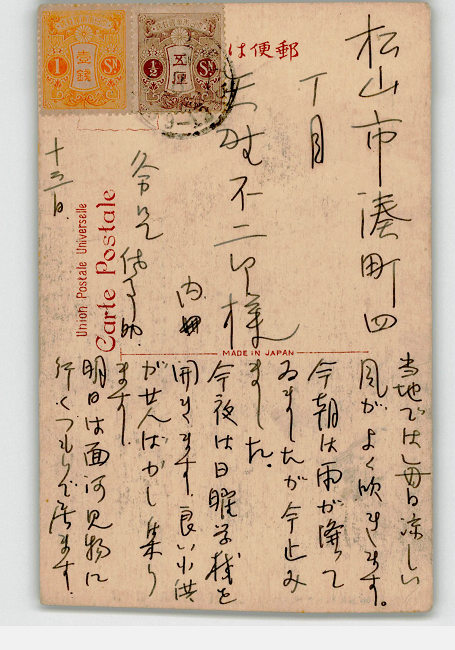 郵便は
壹銭
1 SN
五厘
½ SN
松山市湊町四
丁目
矢野不二郎様
内
十三日
Union Postale Universelle
Carte Postale
MADE IN JAPAN
当地では毎日涼しい
風がよく吹きます。
今朝は雨が降って
ゐましたが今止み
ました。
今夜は日曜学校を
開きます。良い小供
がせんばかし集り
ます。
明日は面河見物に
行くつもりで居ます。